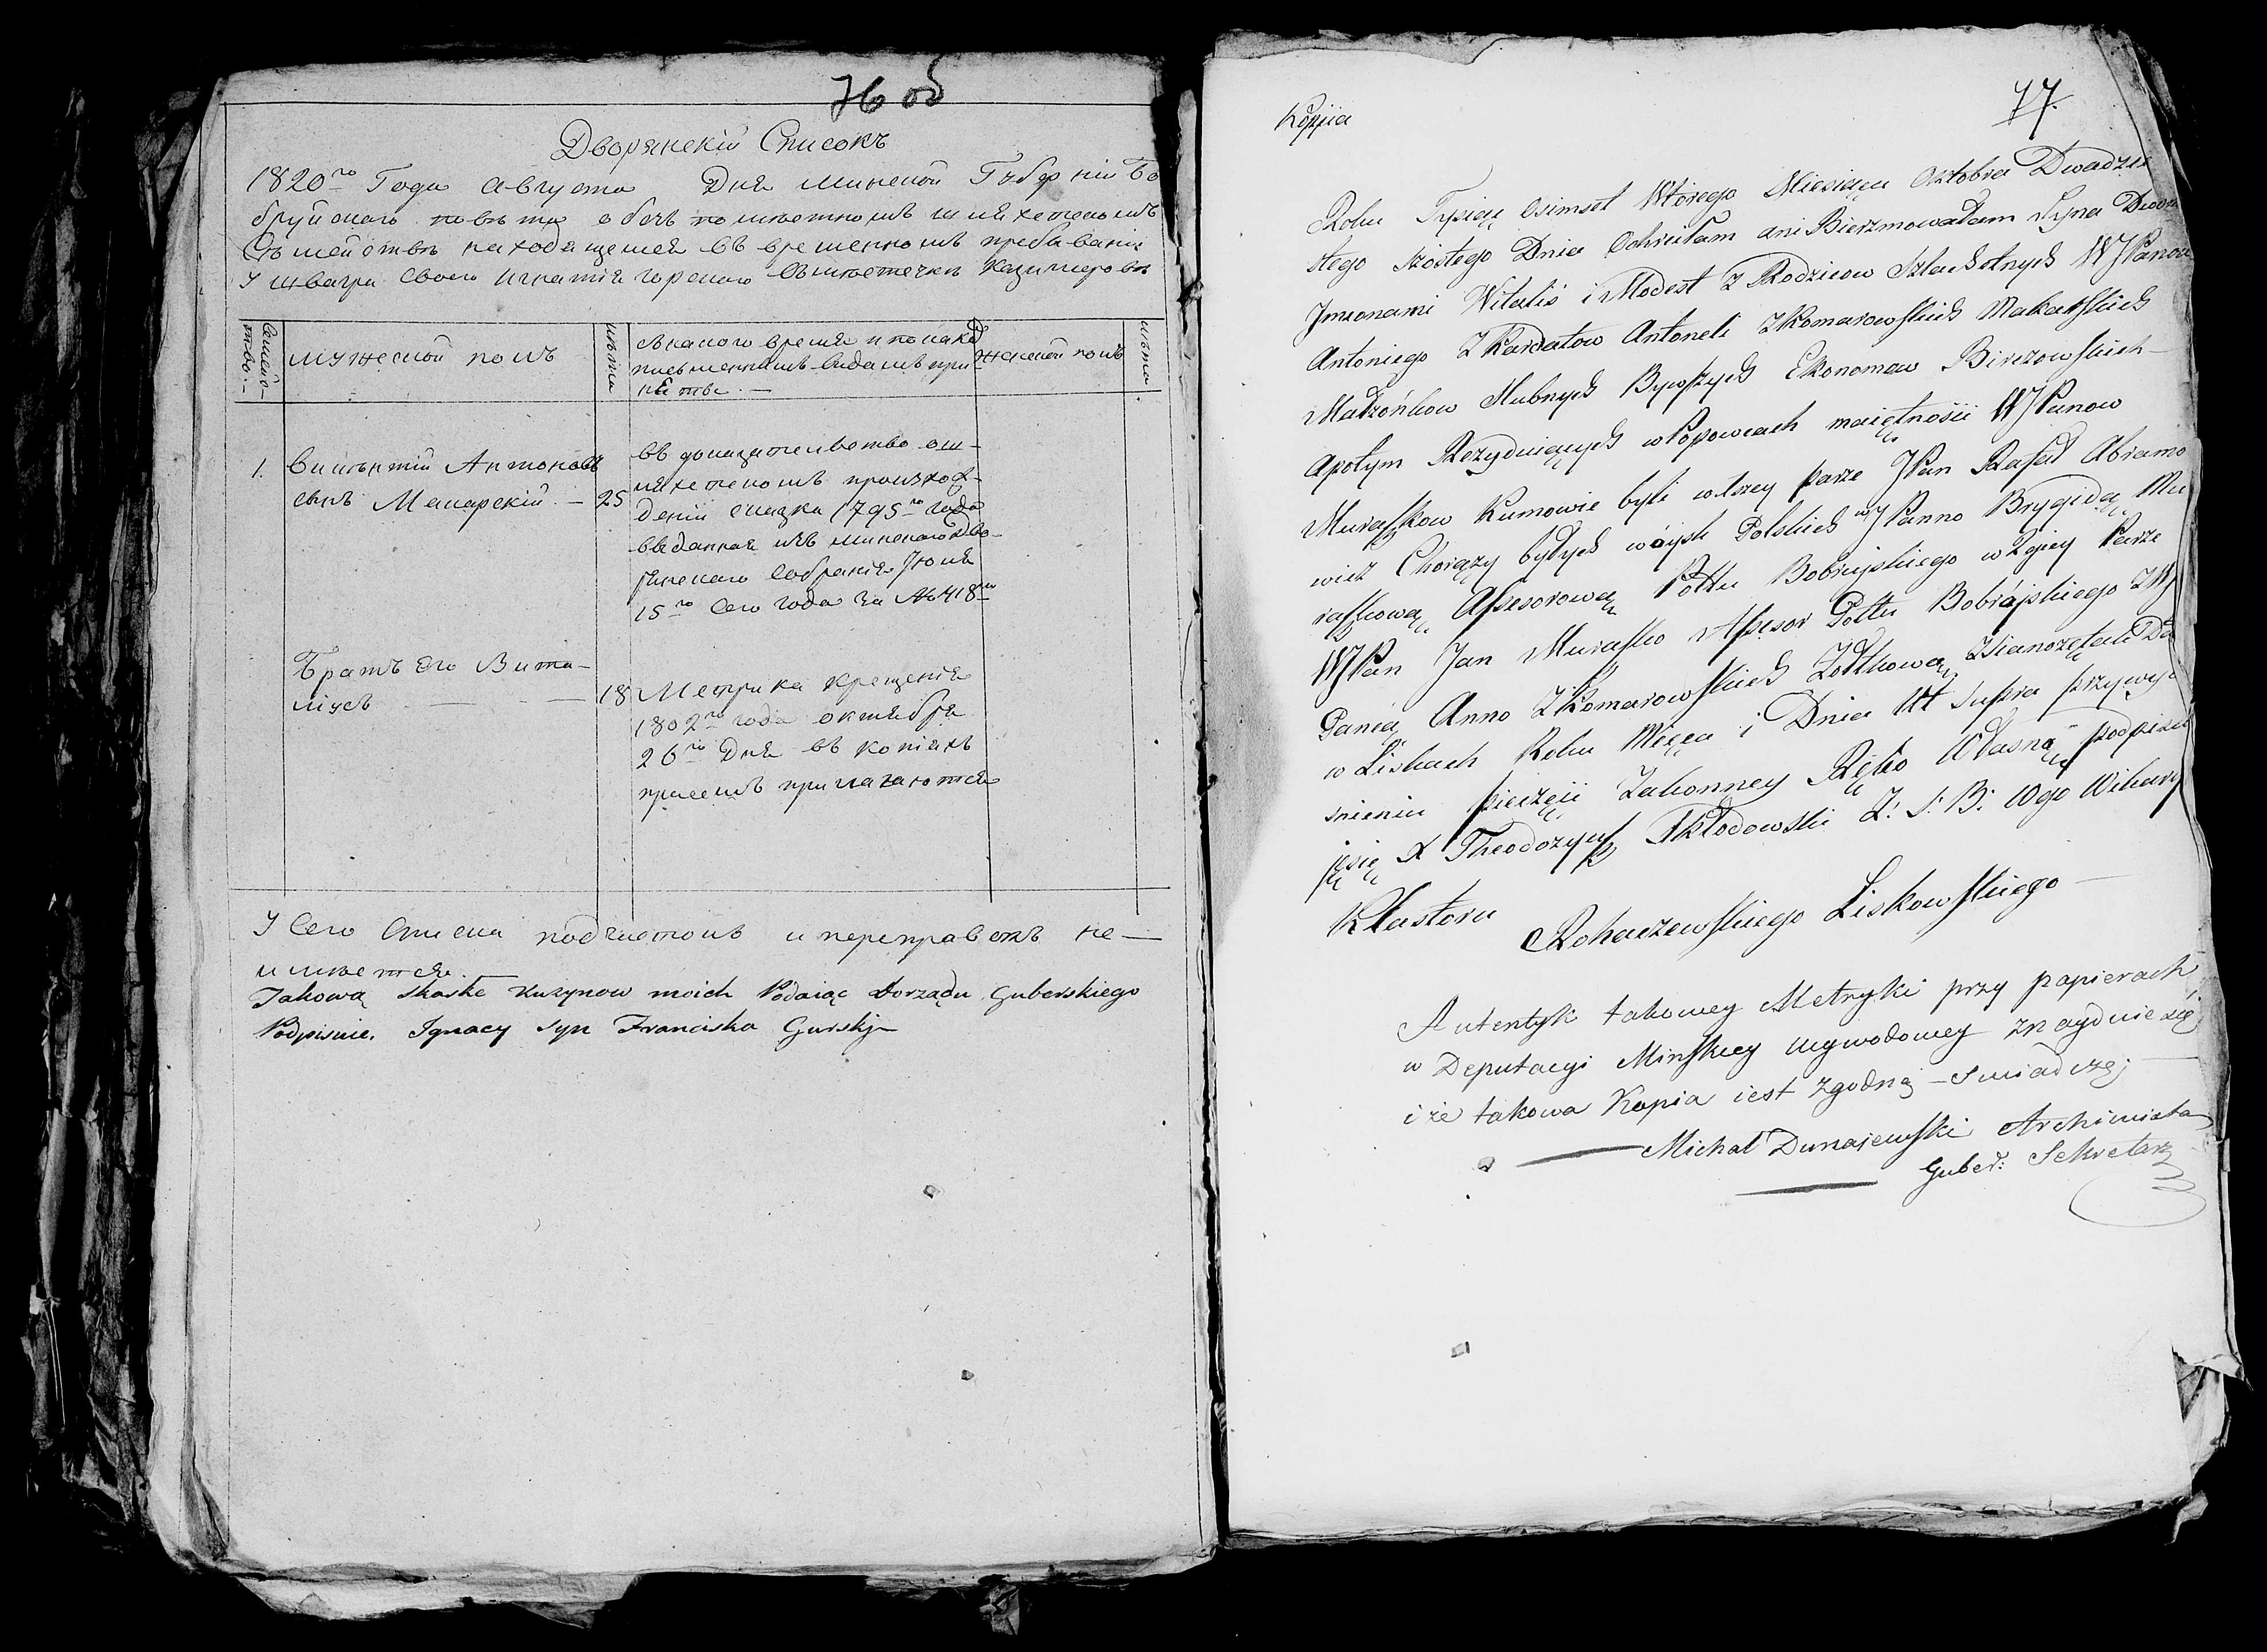 76 об
Дворянскій Списокъ
1820го Года Августа Дня Минской Губерніи Бо
бруйскаго повѣта о безъ помѣстномъ шляхетскомъ
Сѣмействѣ находящемся въ временномъ пребываніи
У швагра Своего Игнатія Горскаго Въмѣстечкѣ Казимировѣ
Семей-
ство.-
мужеской полъ
лѣта
Съкакого время и по како
письменнымъ видамъ при-
няты. —
Женской полъ
лѣта
1. Викѣнтій Антоновъ
сынъ Макарскій. — 25
въ доказателство о ш-
ляхетскомъ произхож-
деніи сказка 1795го года
выданная изъ минскаго дво-
рянскаго Собранія Іюня
15го Сего года за № 418м
Братъ Его Вита-
ліусъ — — 18
Метрика крещенія
1802го года октября
26го Дня въ копіяхъ
присемъ прилагаются
У Сего Списка подчистокъ и переправокъ не —
имѣется.
Takową skaske kuzynow moich Podaiąc dorządu Guberskiego
Podpisuie. Ignacy syn Franciska Gurskj
77.
Kopija
Roku Tysiąc Osimset Wtórego Miesiąca Oktobra Dwadzie
stego szóstego Dnia Ochrciłam ani Bierzmowałam Syna Dwom
Jmionami Witaliś i Modest z Rodzicow Szlachetnych WJPanow
Antoniego Z Kardatow Antoneli z Komarowskich Makarskich
Małżońkow Slubnych Bywszych Ekonomow Birczowskich —
apotym Rezyduiących w Popowcach maiętnośii WJPanow
Muraszkow Kumowie byli w 1szey parze JPan Rafał Abramo
wicz Chorąży byłych wóysk Polskich wJPanno Brygidą Mu
raszkową Assesorową Pottu Bobruyskiego w 2giey Parze
WJPan Jan Muraszko Assesor Pottu Bobrujskiego z W
Panią Anno z Komarowskich Żołtkową
w Liskach Roku Mięca i Dnia Ut supra przy wyci
snieniu pieczęci Zakonney Ręko Własną podpisu
ję się X Theodozyusz Skłodowski Z: S: B: Wgo Wikary
Klasztoru Rohaczewskiego Liskowskiego —
Autentyk takowey Metryki przy papierach
w Deputacyi Minskiey wywodowey znayduie się
i że takowa Kopia iest zgodną — swiadczę
Michał Dunajewski Archiwista
Guber: Sekretarz